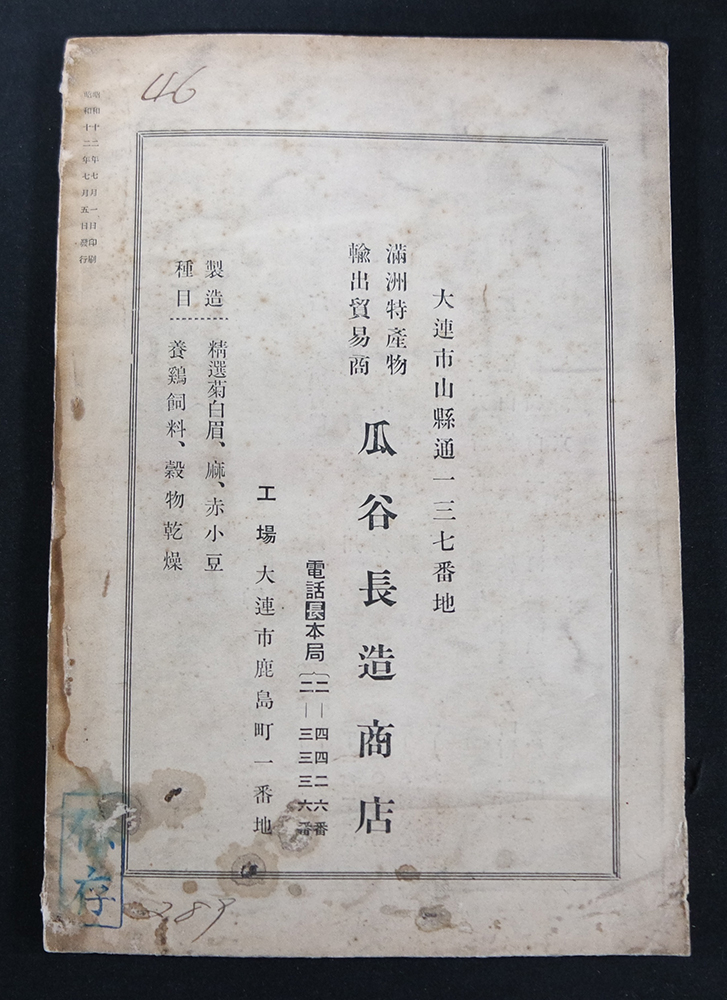 46
大連市山縣通一三七番地
滿洲特產物
輸出貿易商
瓜谷長造商店
電話長本局
二―四四二六番
二―三三三六番
工場 大連市鹿島町一番地
製造
種目
精選菊白眉、麻、赤小豆
養鷄飼料、穀物乾燥
昭和十二年七月一日印刷
昭和十二年七月五日發行
保存
289